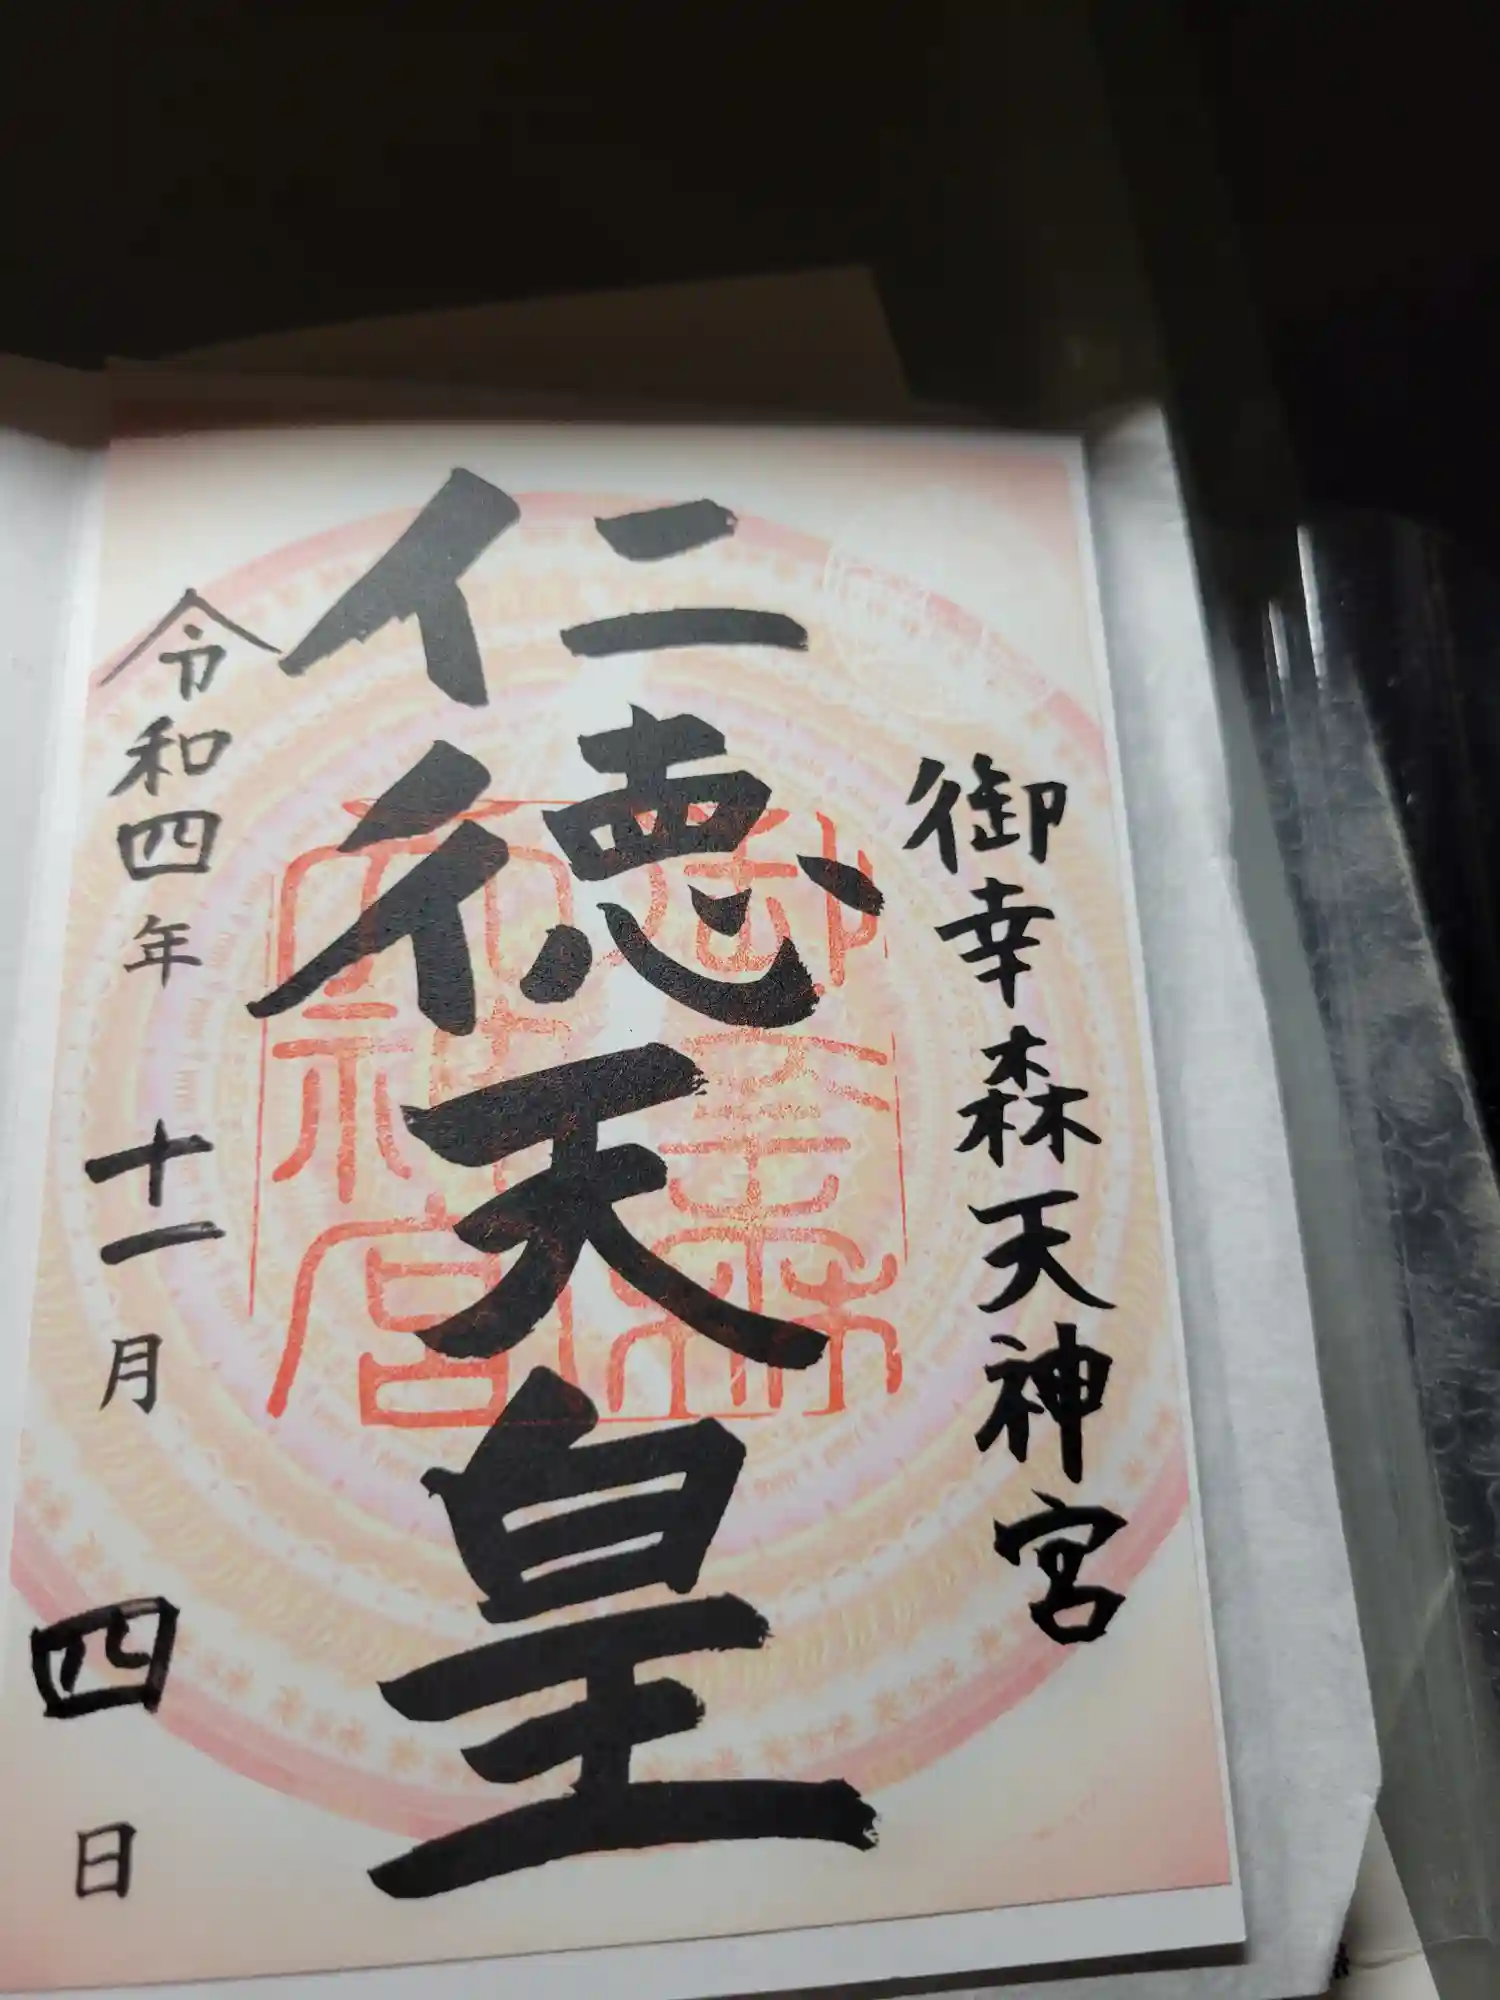 御幸森天神宮
仁徳天皇
令和四年十一月四日
御幸森
天神宮